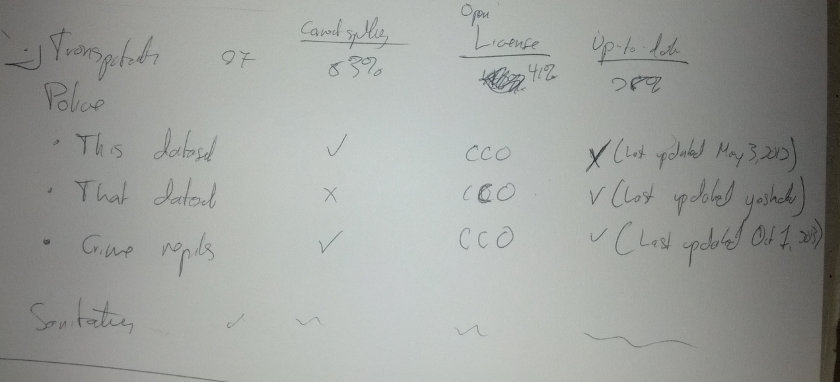 Open
License
Up-to-date
Transportation 97 83% 41%
Police
• This dataset ✓ CC0 X (Last updated May 3, 2013)
• That dataset x CC0 ✓ (Last updated yesterday)
• Crime ✓ CC0 ✓ (Last updated Oct 1, 2013)
Sanitation ✓ ~ ~